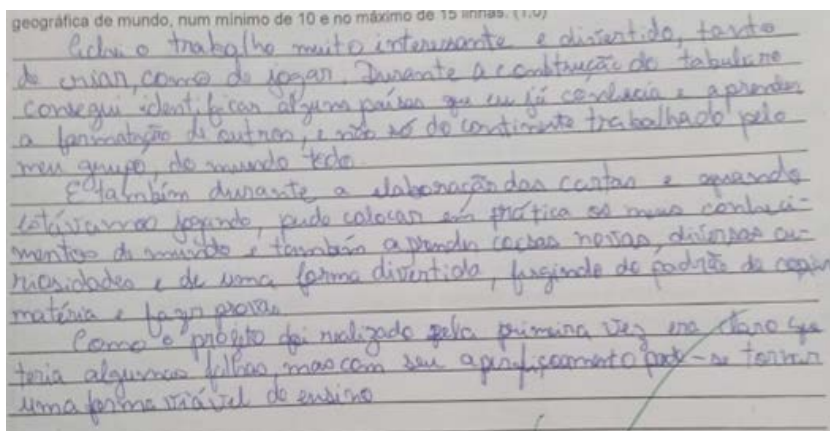 geográfica de mundo, num mínimo de 10 e no máximo de 15 linhas. (1,0)
Achei o trabalho muito interessante e divertido, tanto
de criar, como de jogar. Durante a construção do tabuleiro
consegui identificar alguns países que eu já conhecia e aprender
a formatação de outros, e não só do continente trabalhado pelo
meu grupo, do mundo todo.
E também durante a elaboração das cartas e quando
estávamos jogando, pude colocar em prática os meus conheci-
mentos de mundo e também aprender coisas novas, diversas cu-
riosidades e de uma forma divertida, fugindo do padrão de copiar
matéria e fazer provas.
Como o projeto foi realizado pela primeira vez era claro que
teria algumas falhas, mas com seu aperfeiçoamento pode-se tornar
uma forma viável de ensino